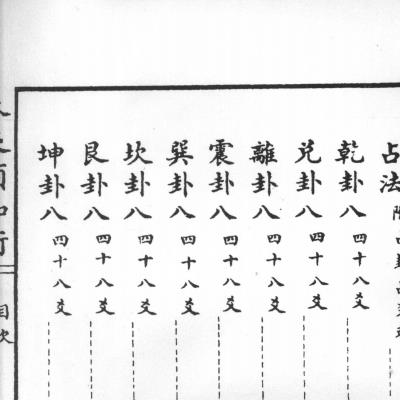 占法
乾卦八 四十八爻
兌卦八 四十八爻
離卦八 四十八爻
震卦八 四十八爻
巽卦八 四十八爻
坎卦八 四十八爻
艮卦八 四十八爻
坤卦八 四十八爻
目次